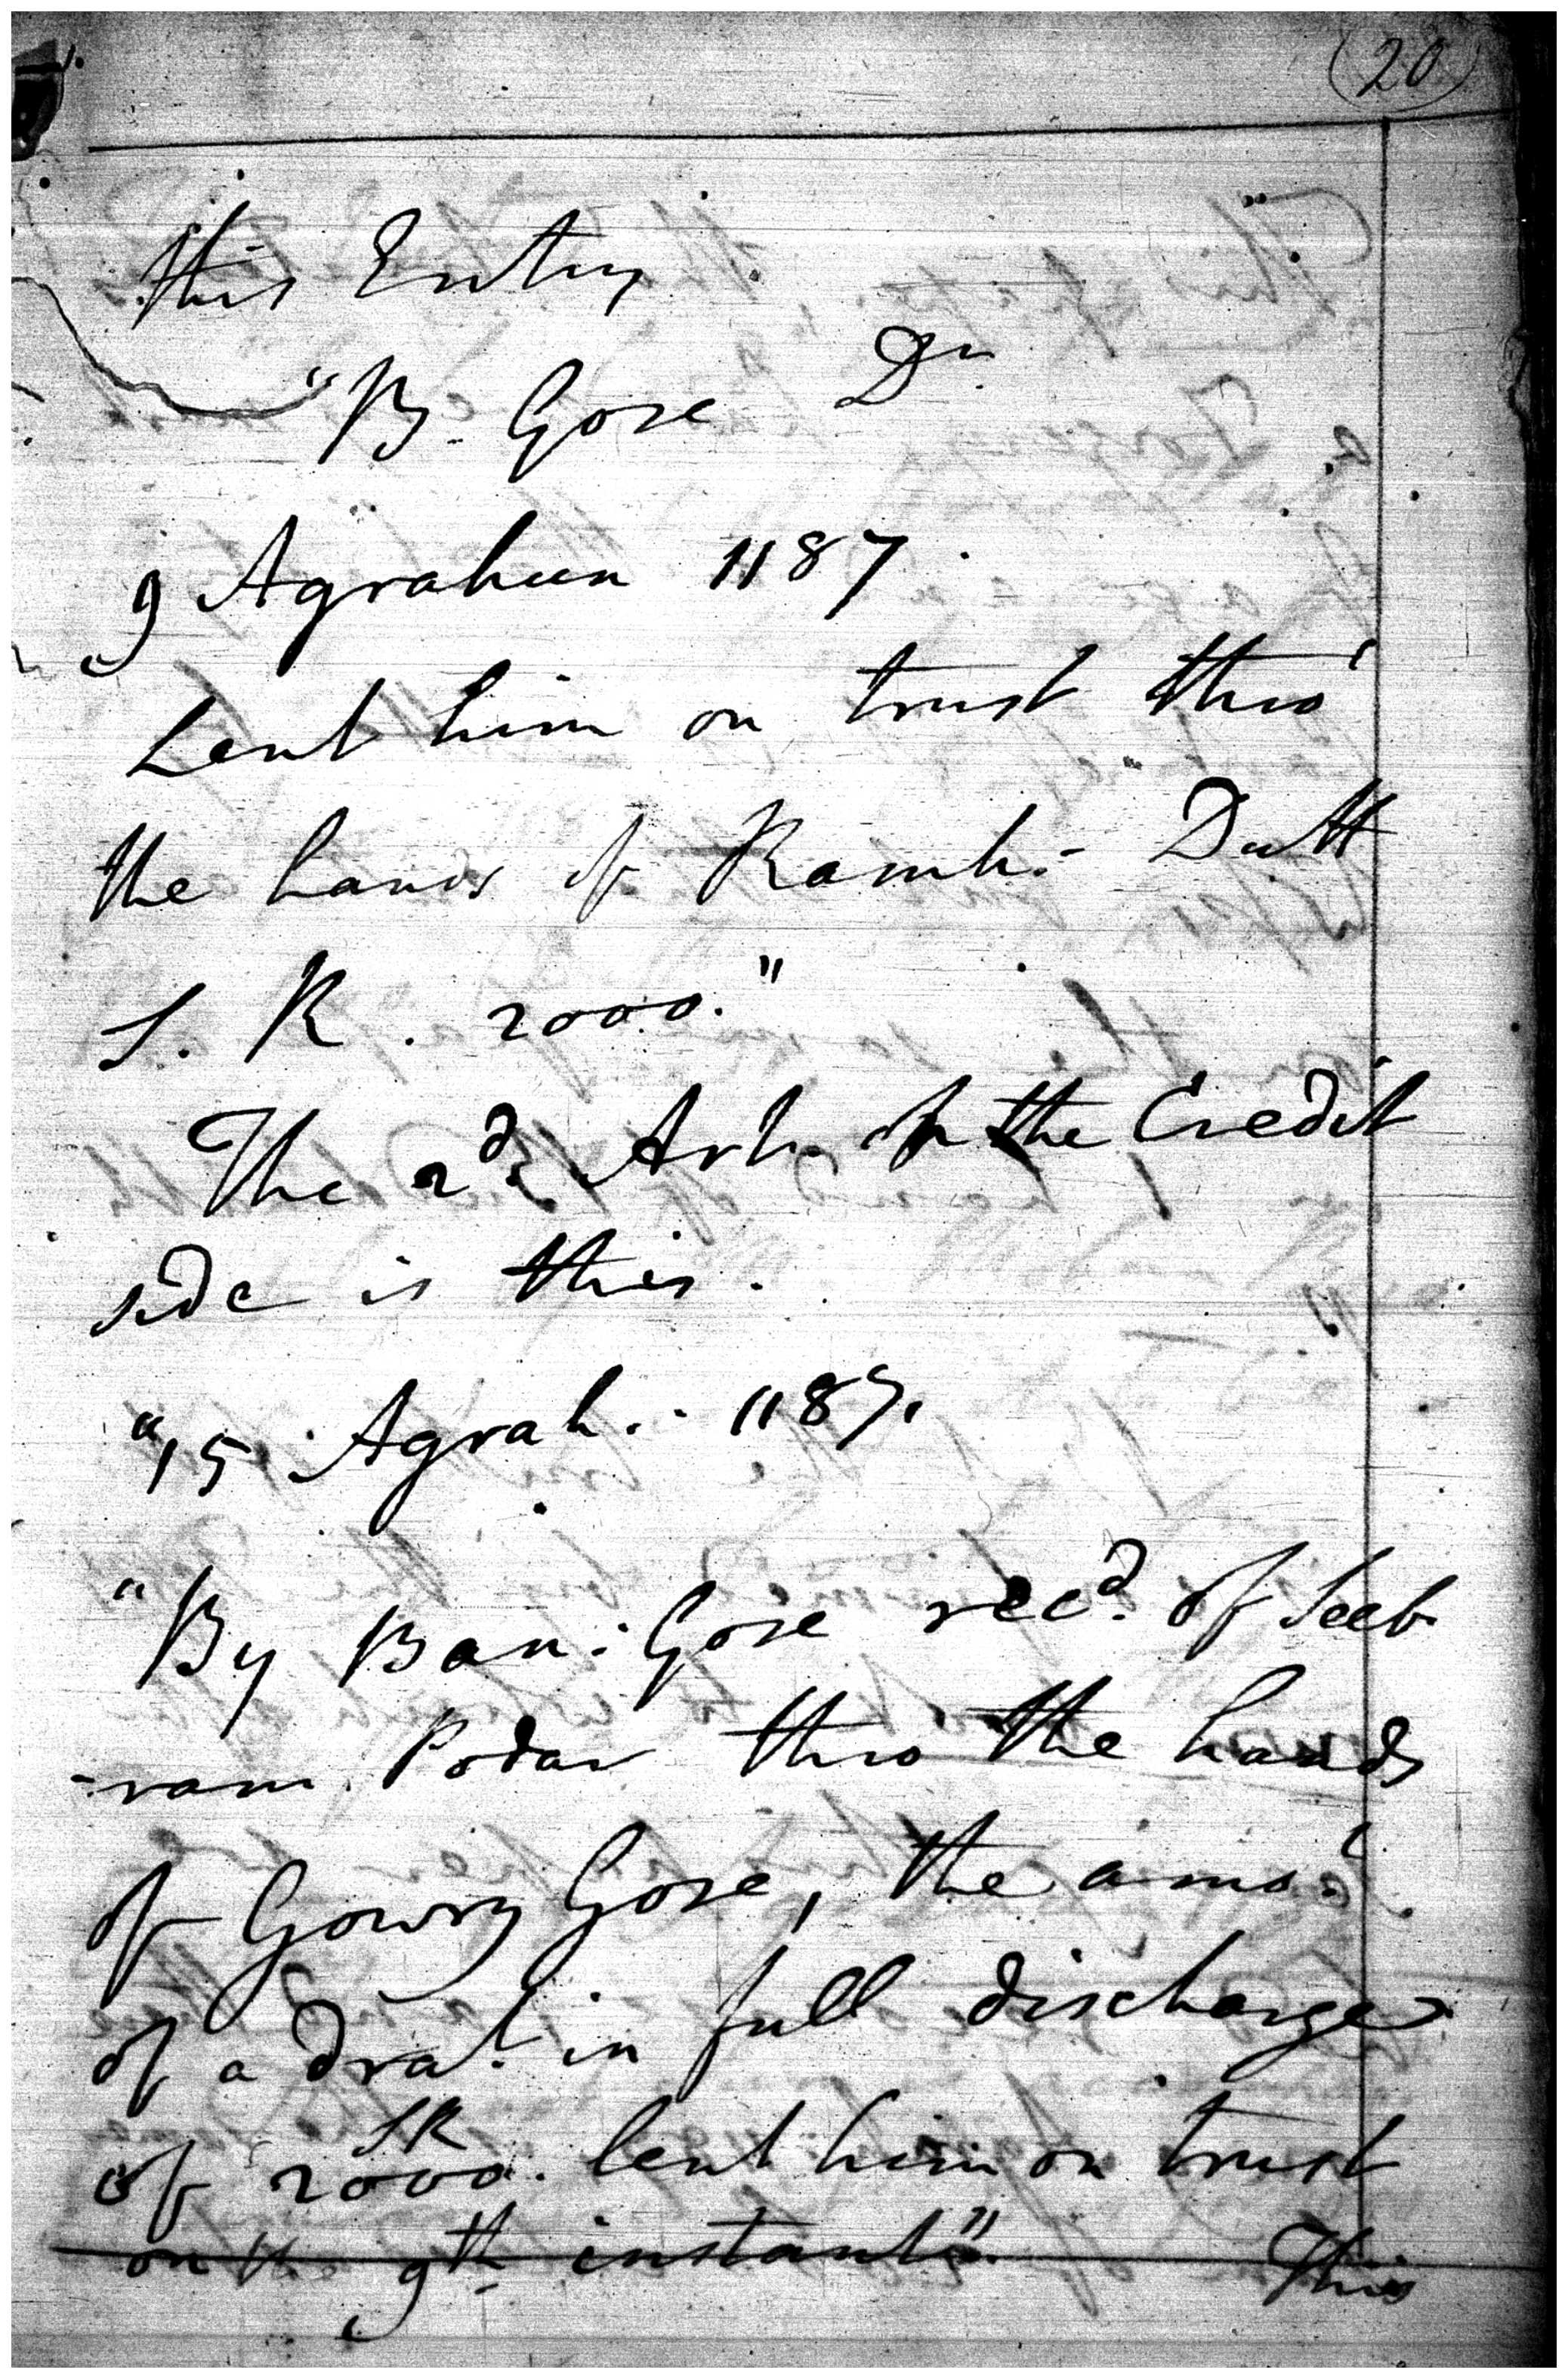 (20)
this Entry
"B. Gose Dr.
9 Agrahun 1187.
Lent him on trust thro'
the hands of Ramk:- Dutt
S. R. 2000."
The 2d. Art. on the Credit
side is this.
"15 Agrah:- 1187.
"By Ban: Gose recd. of Seeb-
-ram Podar thro the hands
of Gowry Gose, the amot.
of a Draft. in full discharge
of SR 2000. lent him on trust
on the 9th instant"
This